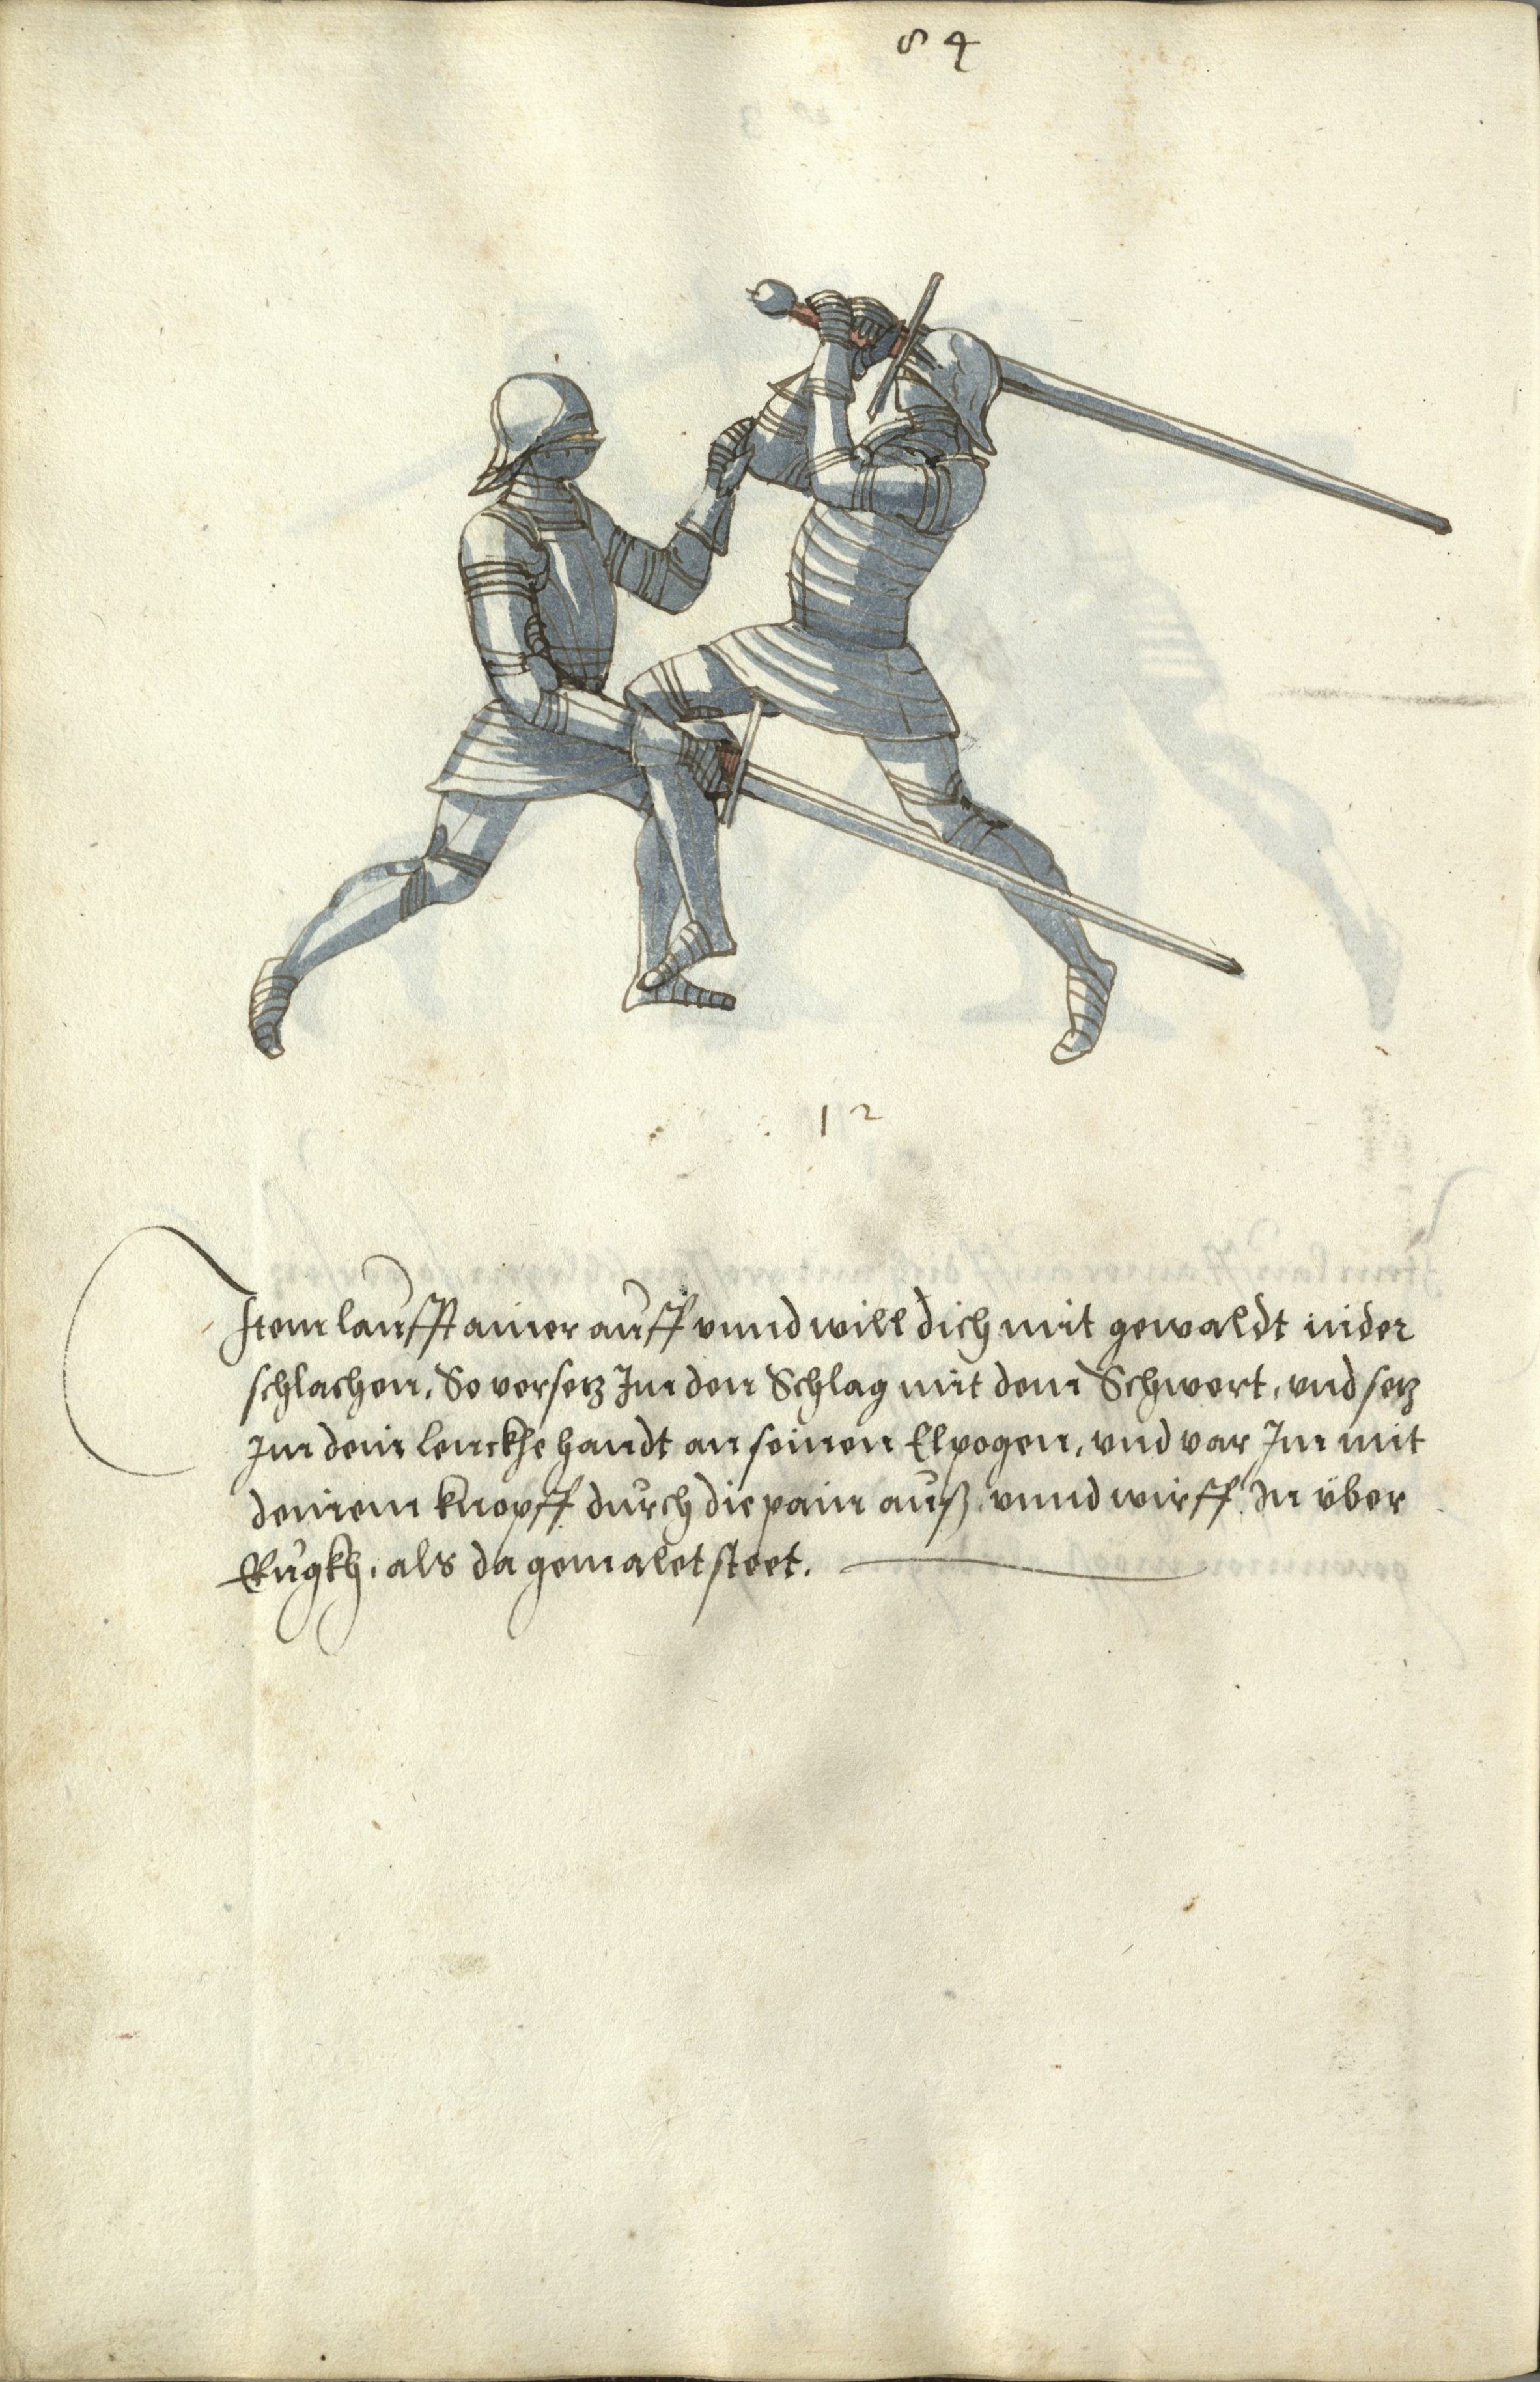 84
12
Item laufft ainer auff vnnd will dich mit gewaldt nider
schlachen. So versetz Im den Schlag mit dem Schwert, vnd setz
Im dein lenckhe handt an seinen Elpogen, vnd var Im mit
deinem knopff durch die pain auß, vnnd wirff In über
Rugkh, als da gemalet steet.